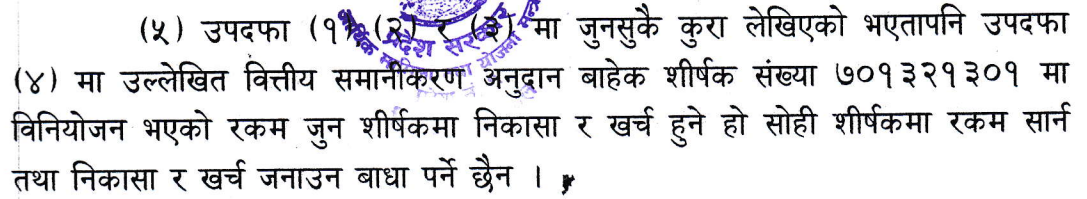 (५) उपदफा (१) (२) र (३) मा जुनसुकै कुरा लेखिएको भएतापनि उपदफा
(४) मा उल्लेखित वित्तीय समानीकरण अनुदान बाहेक शीर्षक संख्या ७०१३२१३०१ मा
विनियोजन भएको रकम जुन शीर्षकमा निकासा र खर्च हुने हो सोही शीर्षकमा रकम सार्न
तथा निकासा र खर्च जनाउन बाधा पर्ने छैन ।
प्रदेश सरकार